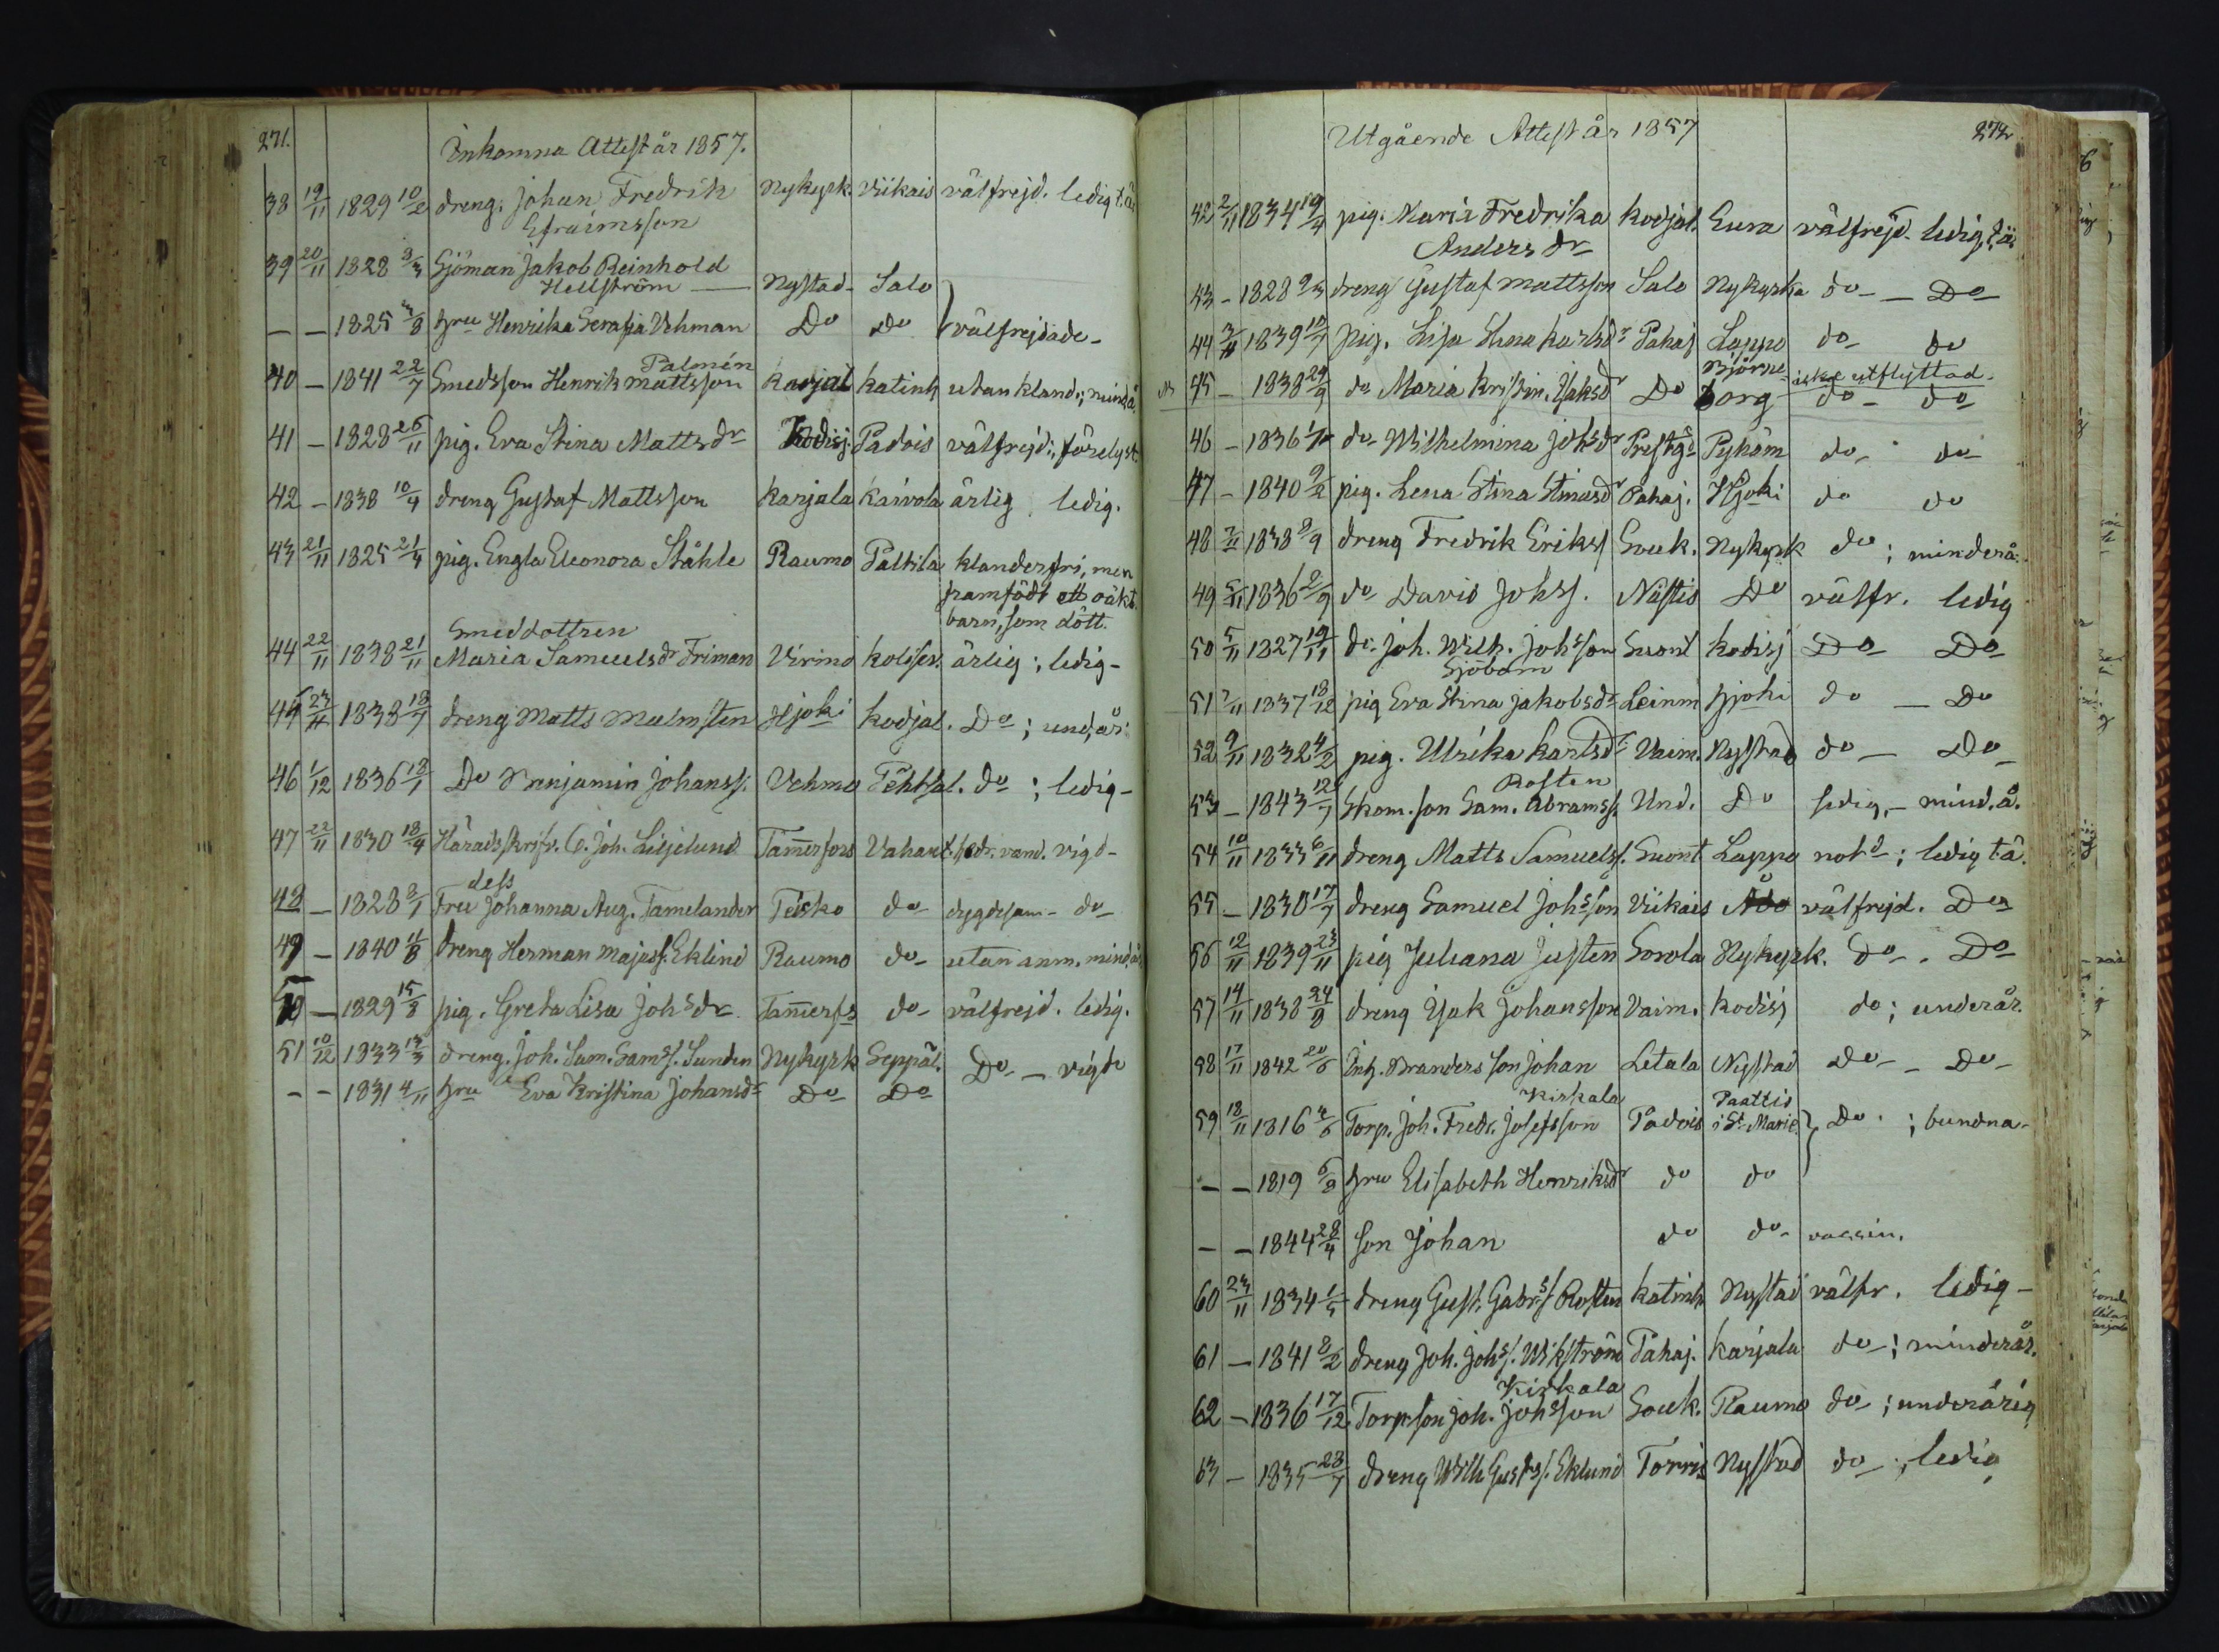 271.
Inkomna Attest år 1857.
38 19/11 1829 10/2 dreng. Johan Fredrik Nykyrk. Viikais välfrejd. ledig t.ä.
Efraimsson
39 20/11 1828 3/3 Sjöman Jakob Reinhold
Hellström — Nystad - Salo
— — 1825 /8 hru Henrika Serafia Vehman Do Do välfrejdade -
Palmén
40 — 1841 22/7 Smedsson Henrik Mattsson Karjal Katinh utan kland.; mind.å.
41 — 1828 26/11 pig. Eva Stina Mattsdr Kodisj. Padois välfrejd.; förelyst.
42 — 1838 10/4 dreng Gustaf Mattsson Karjala Kaivola ärlig ledig.
43 21/11 1825 21/4 pig. Engla Eleonora Ståhle Raumo Palttila klanderfri, men
framfödt ett oäkt.
barn, som dött.
Smeddottren
44 22/11 1838 21/11 Maria Samuelsdr Friman Virmo ärlig; ledig -
45 23/11 1838 18/7 dreng Matts Malmsten Hjoki Kodjal. Do; und.år.
46 1/12 1836 18/1 Do Benjamin Johanss. Vehmo Do; ledig -
47 22/11 1830 18/4 Häradsskrifv. C. Joh. Liljelund Tamerfors Vahant. hedr. vand. vigd -
dess
48 — 1828 8/1 Fru Johanna Aug. Tamelander Teisko do - dygdesam - do -
49 — 1840 4/8 dreng Herman Majass. Eklind Raumo do - utan anm. mind.år
50 — 1829 15/8 pig. Greta Lisa Johsdr Tamerfs do - välfrejd. ledig.
51 10/12 1833 13/3 dreng. Joh. Sam. Samss. Sunden Nykyrk Seppäl. Do - — vigde
- - 1831 4/11 hru Eva Kristina Johansdr Do Do
Utgående Attest år 1857 272
42 2/11 1834 19/4 pig. Maria Fredrika Kodjal. Eura välfrejd. ledig t.ä.
Anders dr
43 - 1828 9/3 dreng Gustaf Mattsson Salo Nykyrka do - — Do
44 3/11 1839 10/7 pig. Lisa Stina Karlsdr Pahaj Lappo do - do
Björne- icke utflyttad.
45 - 1838 29/9 do Maria Kristin. Isaksdr Do borg do - do
46 - 1836 do - Wilhelmina Johsdr Prestgd Pyhäm do - do
47 - 1840 9/2 pig. Lena Stina Pahaj. Hjoki do do
48 3/11 1838 8/9 dreng Fredrik Erikss Souk. Nykyrk do; minderå.
49 5/11 1836 2/9 do David Johss. Nästis Do välfr. ledig
50 5/11 1827 19/11 do Joh. Wilh. Johsson Suont Kodisj Do Do
Sjöbom
51 7/11 1837 18/12 pig Eva Stina Jakobsdr Leinm Hjoki do — Do
52 9/11 1832 4/2 pig. Ulrika Karlsdr Vaim. Nystad do — Do
Rosten
53 — 1843 12/7 Skom. son Sam. Abramss. Und. Do ledig. - mind.å.
54 10/11 1833 6/11 dreng Matts Samuelss. Suont Lappo notd; ledig t.ä.
55 — 1830 17/7 dreng Samuel Johsson Viikais Åbo välfrejd. Do
56 12/11 1839 23/11 pig Juliana Justen Sorola Nykyrk. Do -. Do
57 14/11 1838 24/8 dreng Isak Johansson Vaim. Kodisj do; underår.
58 17/11 1842 20/6 Enk. Branders son Johan Letala Nystad Do - - Do -
Kirkala Paattis
59 18/11 1816 4/6 Torp. Joh. Fredr. Josefsson Padois i St. Marie. Do.; bundna -
— — 1819 6/8 hru Elisabeth Henriksdr do do
— — 1844 28/4 son Johan do do - vaccin.
60 23/11 1834 1/5 dreng Gust. Gabrss. Rosten Katinh Nystad välfr. ledig -
61 — 1841 8/2 dreng Joh. Johss. Wikström Pahaj. Karjala do -; minderår.
Kirkala
62 — 1836 17/12 Torp.son Joh. Johsson Souk. Raumo do -; underårig
63 — 1835 28/7 dreng Wilh Gustss. Eklund Torris Nystad do -; ledig